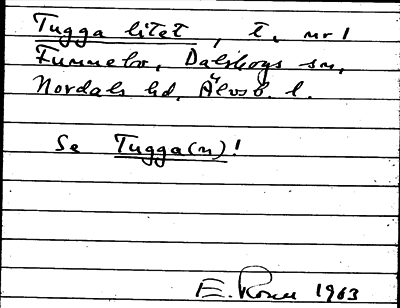 Tugga litet, t. nr 1
Dalskogs sn,
Nordals hd, Älvsb. l.
Se Tugga(n)!
E. 1963